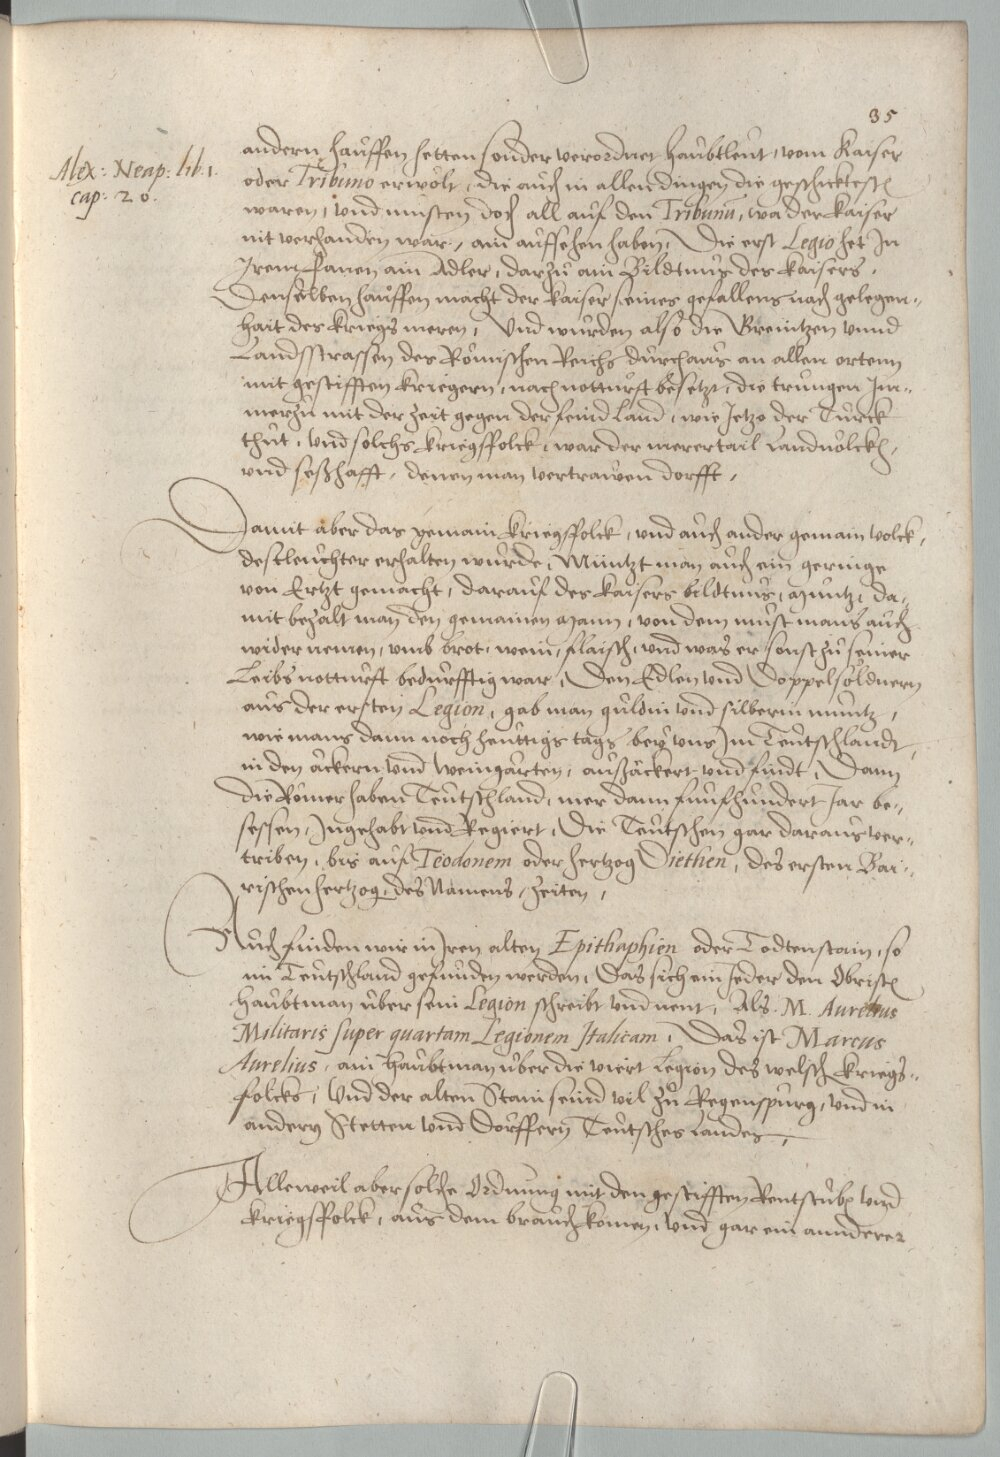 35
Alex: Neap: lib: 1.
cap: 20.
andern hauffen hetten sonder verordnet haubtleut, vom Kaiser
oder Tribuno erwölt, die auch in allen dingen die geschicktesten
waren, und muesten doch all auf den Tribunū, wa der Kaiser
nit verhanden war, ain aufsehen haben, Die erst Legio het In
Irem Fanen ain Adler, darzu ain Bildtnus des Kaisers,
Denselben hauffen macht der Kaiser seines gefallens nach gelegen-
hait des Kriegs meren, Und wurden also die Grenitzen unnd
Landsstrassen des Römischen Reichs durchaus an allen ortenn
mit gestifften Kriegern, nach notturft besetzt, die trungen Im-
merzu mit der Zeit gegen der feind Land, wie Jetzo der Türck
thut, und solchs Kriegsfolck, war der merertail Landvölckh,
und seßhafft, denen man vertrawen dorfft,
Damit aber das gemain Kriegsfolck, und auch ander gemain volck,
desst leuchter erhalten wurde, Müntzt man auch ein geringe
von Ertzt gemacht, darauf des Kaisers bildtnus, Muntz, da-
mit bezalt man den gemainen Mann, von dem must mans auch
wider nemen, umb brot, wein, flaisch, und was er sonst zu seiner
Leibs notturft bedurfftig war, Den Edlen und Doppelsöldnern
aus der ersten Legion, gab man guldin und silberin muntz,
wie mans dann noch heuttigs tags bey uns Im Teutschlandt,
in den äckern und Weingärten, außäckert und findt, Dann
die Römer haben Teutschland, mer dann funfhundert Jar be-
sessen, Ingehabt und Regiert, Die Teutschen gar daraus ver-
triben, bis auf Teodonem oder hertzog Diethen, des ersten Bai-
rischen hertzog des Namens, Zeiten,
Auch finden wir in Iren alten Epithaphien oder Todtenstain, so
im Teutschland gefunden werden, Das sich ein jeder den Obristen
haubtman über sein Legion schreibt und nent, Als. M. Aurelius
Militaris super quartam Legionem Italicam, Das ist Marcus
Aurelius, ain haubtman über die viert Legion des welsch Kriegs-
folcks, Und der alten Stain seind vil zu Regenspurg, und in
andern Stetten und Dörffern Teutsches Landes,
Alleweil aber solche Ordnung mit den gestifften Rentstuben und
Kriegsfolck, aus dem brauch komen, und gar ein annderer